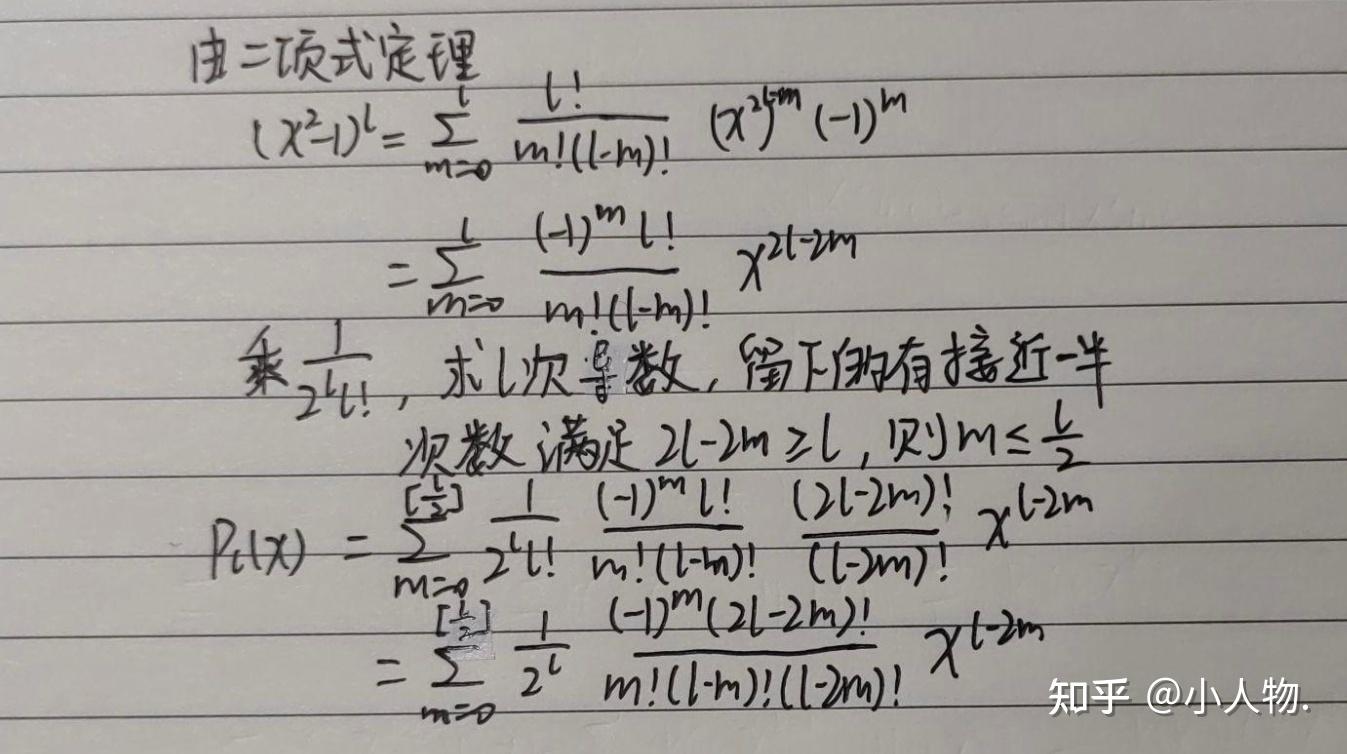 由二项式定理
(x²-1)^l = ∑_{m=0}^{l} \frac{l!}{m!(l-m)!} (x²)^{l-m} (-1)^m
= ∑_{m=0}^{l} \frac{(-1)^m l!}{m!(l-m)!} x^{2l-2m}
乘 \frac{1}{2^l l!}, 求l次导数, 留下的有接近一半
次数满足 2l-2m ≥ l, 则 m ≤ \frac{l}{2}
P_l(x) = ∑_{m=0}^{[\frac{l}{2}]} \frac{1}{2^l l!} \frac{(-1)^m l!}{m!(l-m)!} \frac{(2l-2m)!}{(l-2m)!} x^{l-2m}
= ∑_{m=0}^{[\frac{l}{2}]} \frac{1}{2^l} \frac{(-1)^m (2l-2m)!}{m!(l-m)!(l-2m)!} x^{l-2m}
知乎 @小人物.